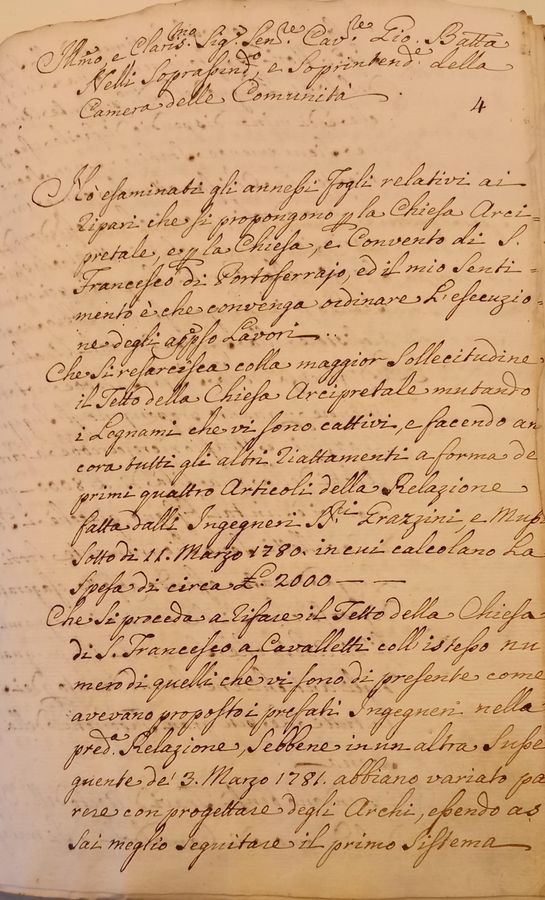 Illmo, e Clarismo. Sigr. Senre. Cavre. Gio. Batta
Nelli Soprasindo., e Soprintende. della
Camera delle Comunità.
4
Hò esaminati gli annessi Fogli relativi ai
ripari che si propongono p la Chiesa Arci=
pretale, e p la Chiesa, e Convento di S.
Francesco di Portoferrajo, ed il mio senti=
mento è che convenga ordinare L'esecuzio=
ne degli appso Lavori.
Che si resarcisca colla maggior sollecitudine
il Tetto della Chiesa Arcipretale mutando
i Legnami che vi sono cattivi, e facendo an
cora tutti gli altri riattamenti a forma de
primi quattro Articoli della Relazione
fatta dalli Ingegneri Grazzini, e
sotto di 11. Marzo 1780. in cui calcolano La
spesa di circa £. 2000 — —
Che si proceda a rifare il Tetto della Chiesa
di S. Francesco a Cavalletti coll'istesso nu
mero di quelli che vi sono di presente come
avevano proposto i prefati Ingegneri nella
prede. Relazione, sebbene in un altra susse
guente de' 3. Marzo 1781. abbiano variato pa
rere con progettare degli Archi, essendo as
sai meglio seguitare il primo sistema